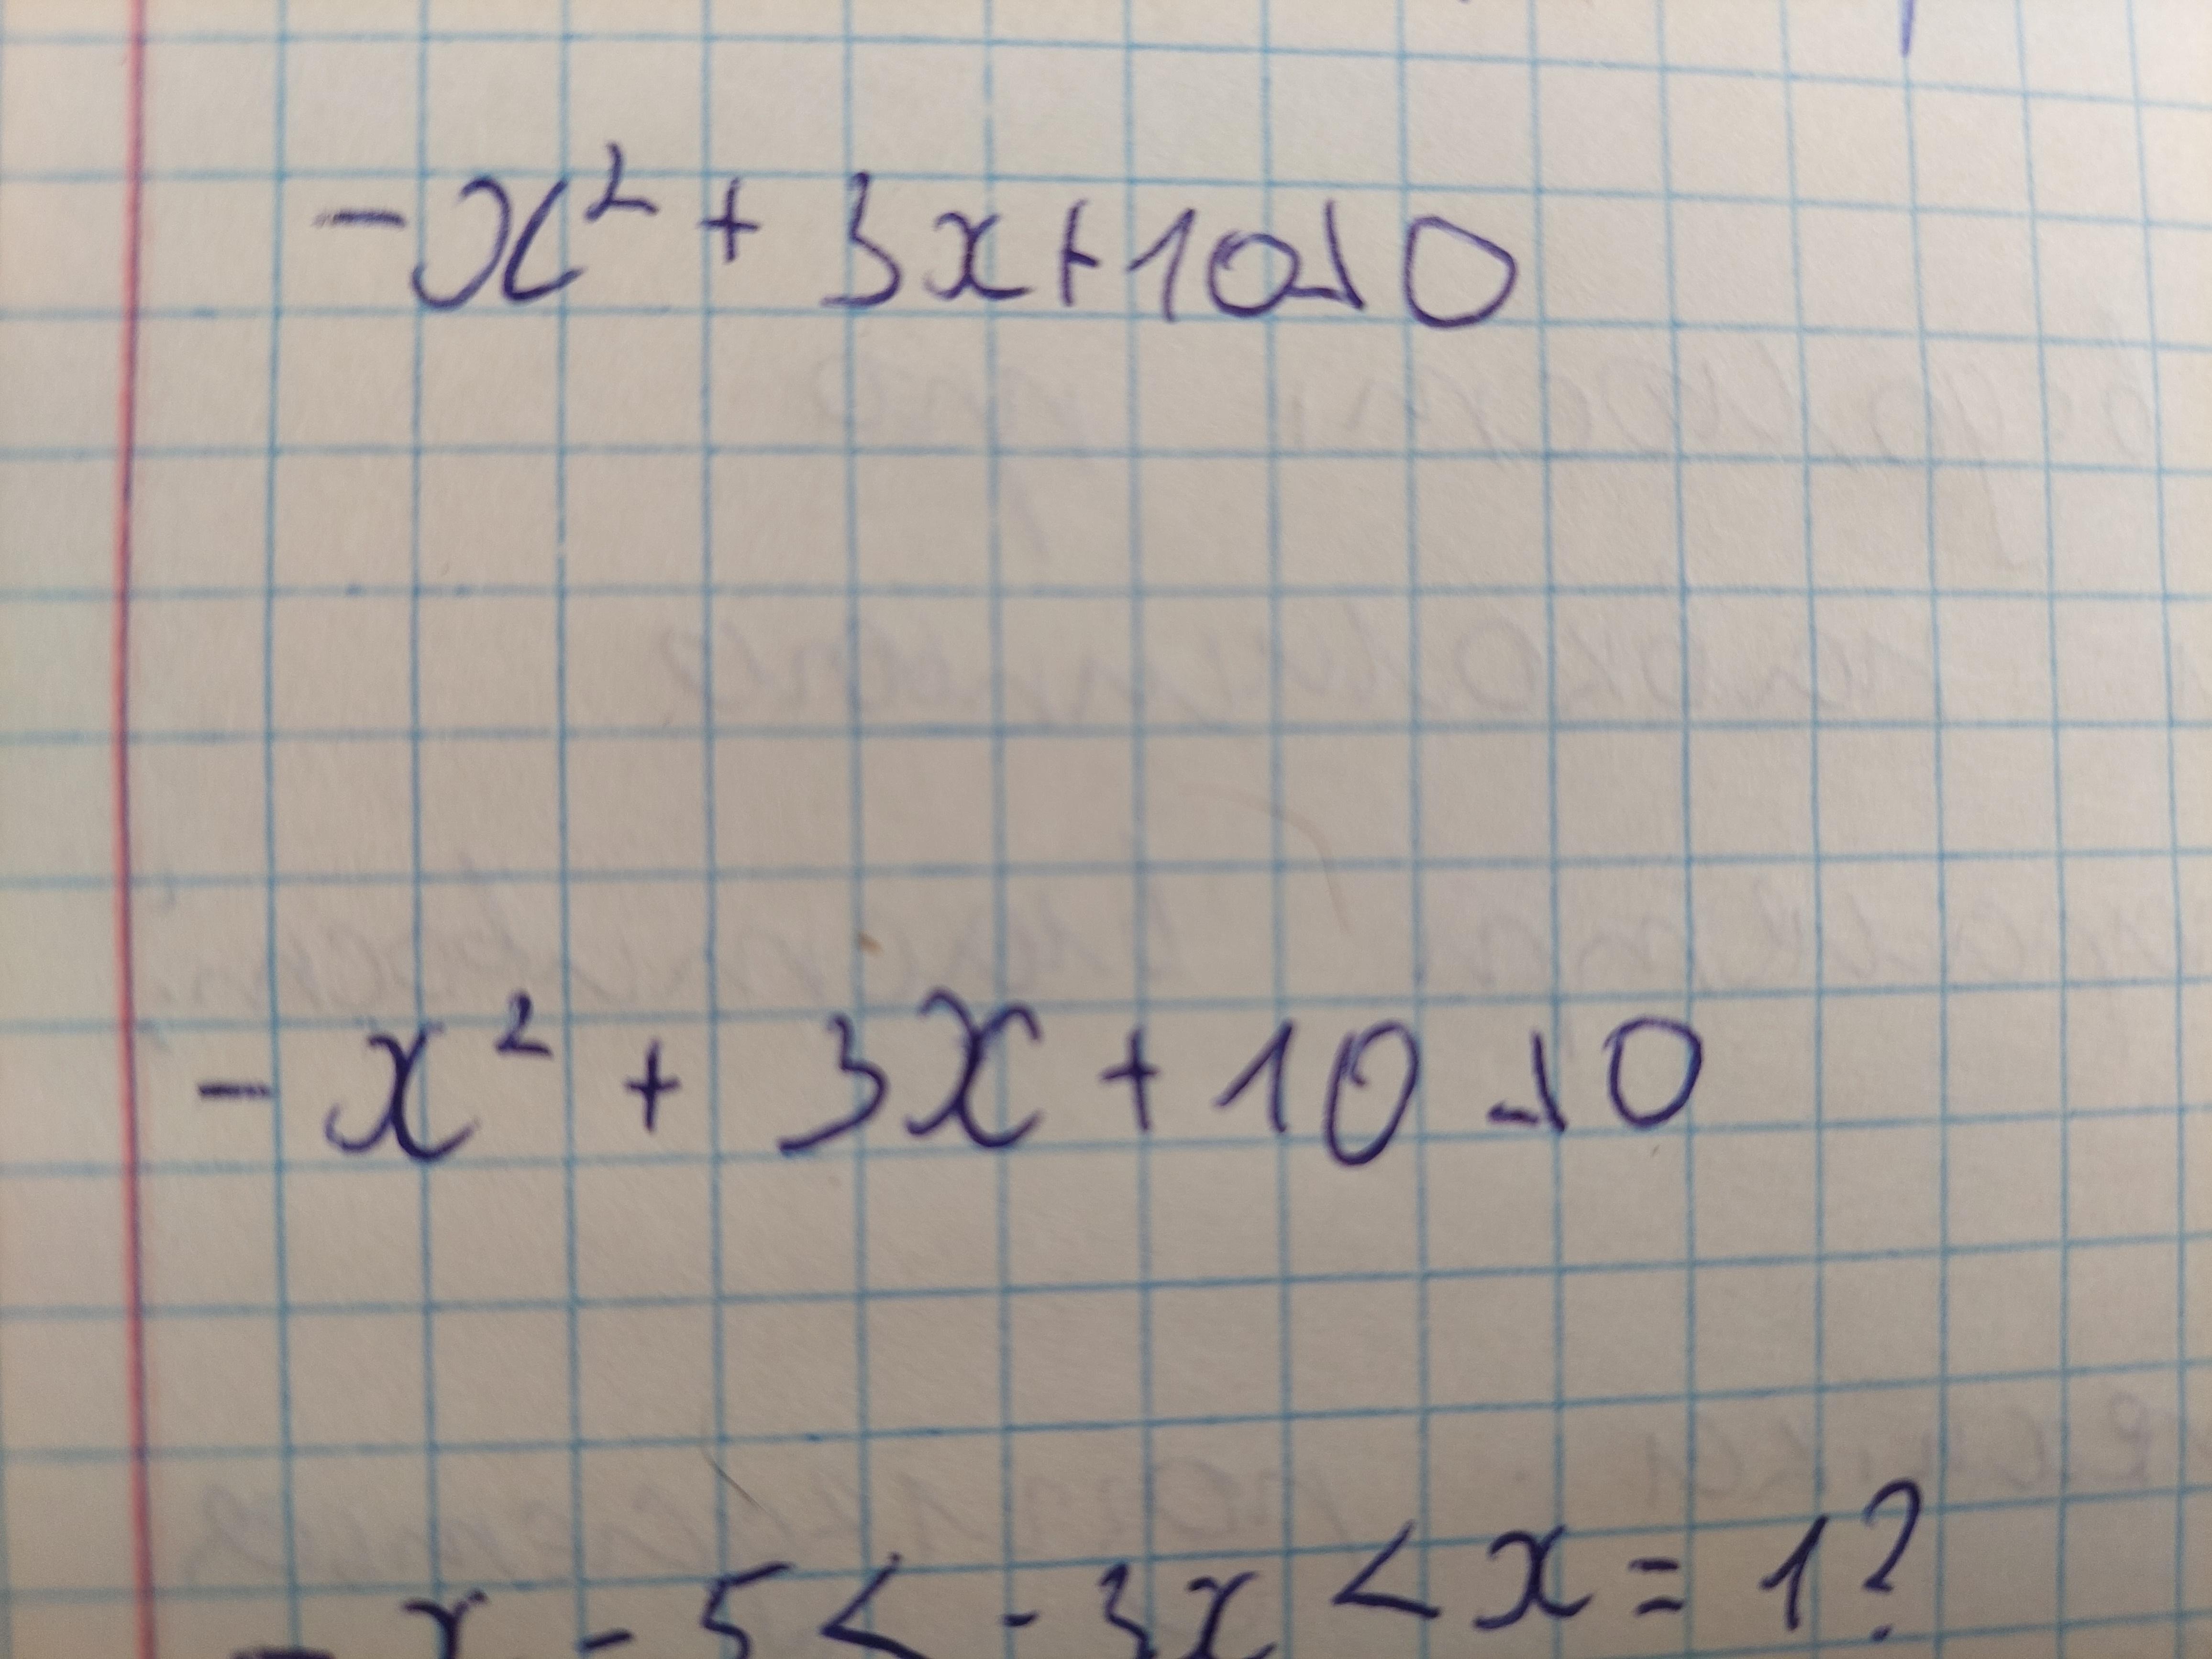 -x² + 3x+10⅃0
-x² + 3x + 10 ⅃ 0
-x - 5 < - 3x < x = 1?